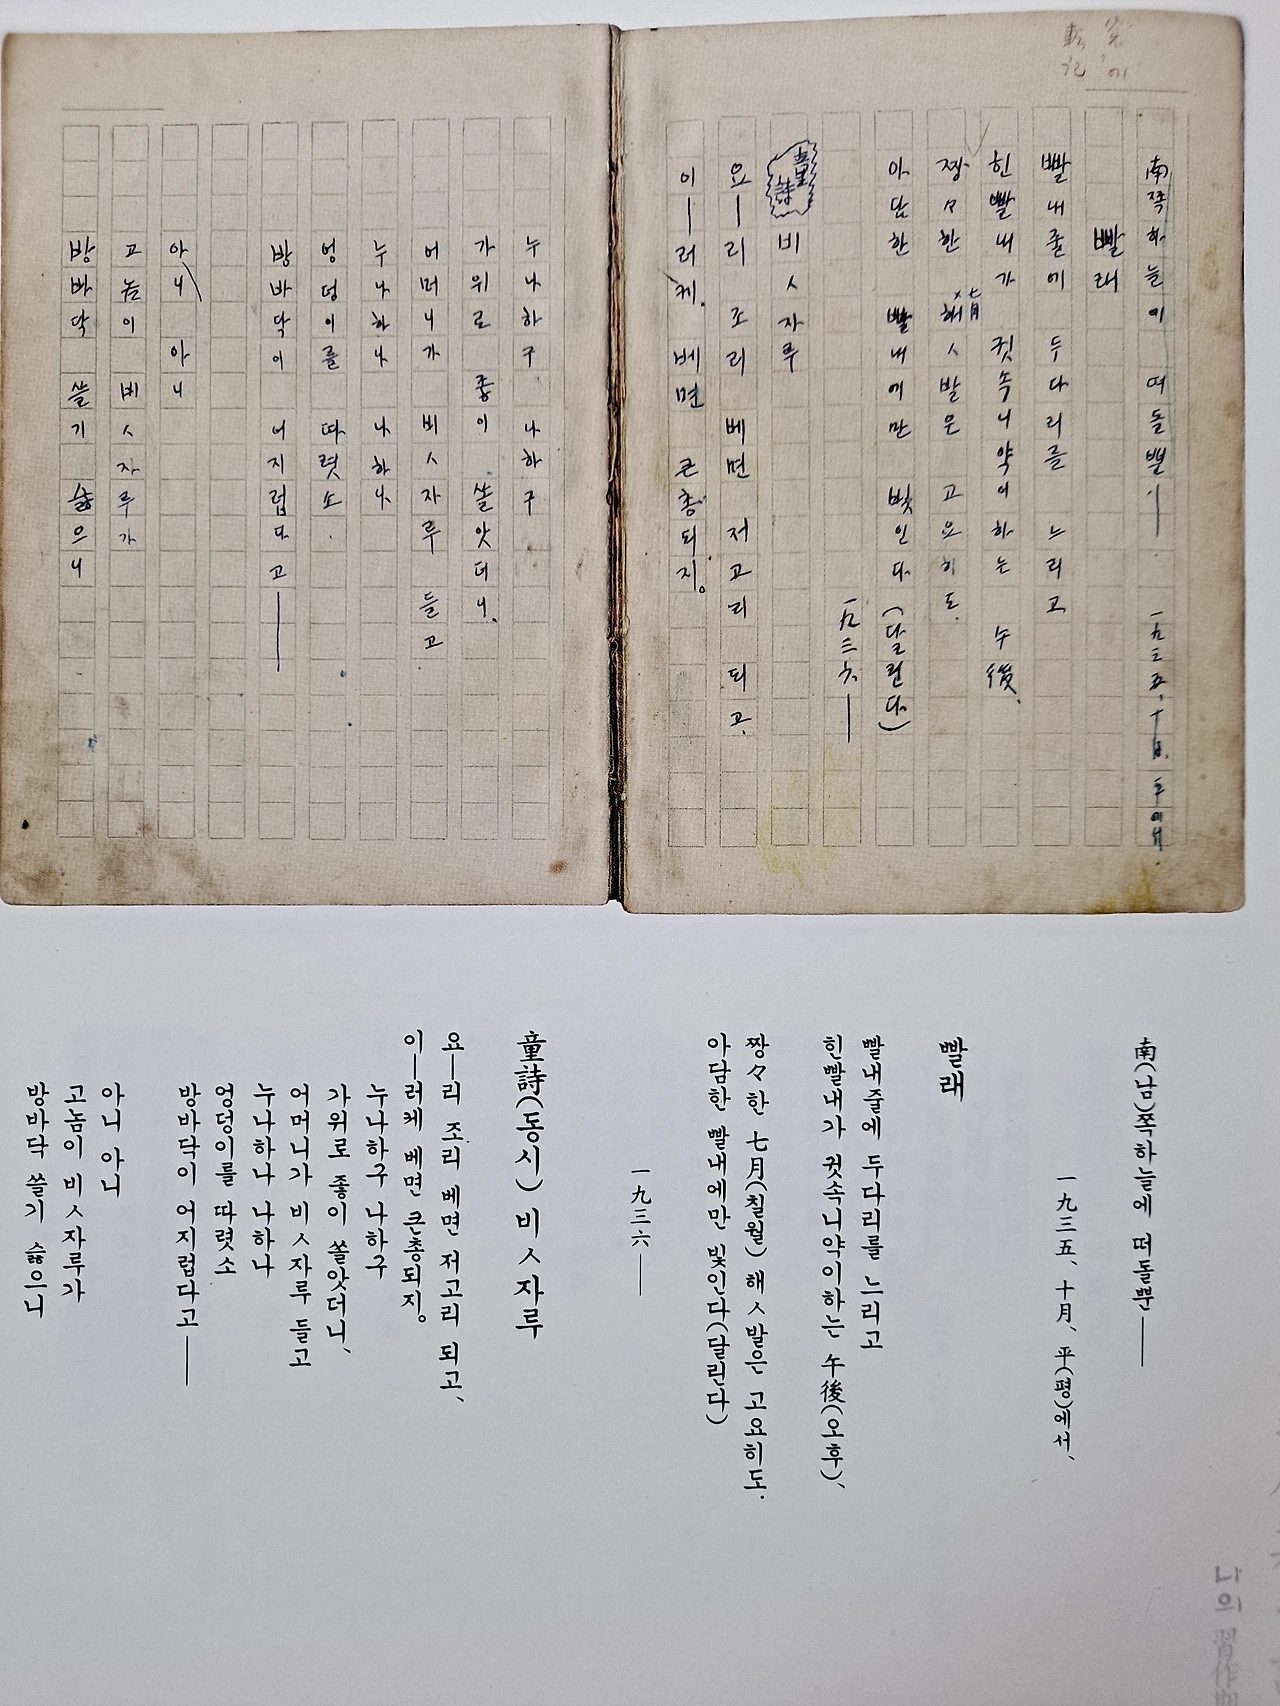 南쪽하늘에 떠돌뿐—
一九三五、十月、平에서、
빨래
빨내줄에 두다리를 느리고
힌빨내가 귓속니약이하는 午後、
짱々한 七月 해ㅅ발은 고요히도.
아담한 빨내에만 빛인다 (달린다)
一九三六—
童詩 비ㅅ자루
요—리 조리 베면 저고리 되고、
이—러케 베면 큰총되지。
누나하구 나하구
가위로 종이 쏠앗더니、
어머니가 비ㅅ자루 들고
누나하나 나하나
엉덩이를 따렷소
방바닥이 어지럽다고—
아니 아니
고놈이 비ㅅ자루가
방바닥 쓸기 슳으니
南(남)쪽하늘에 떠돌뿐—
一九三五、十月、平(평)에서、
빨래
빨내줄에 두다리를 느리고
힌빨내가 귓속니약이하는 午後(오후)、
짱々한 七月(칠월) 해ㅅ발은 고요히도.
아담한 빨내에만 빛인다(달린다)
一九三六—
童詩(동시) 비ㅅ자루
요—리 조리 베면 저고리 되고、
이—러케 베면 큰총되지。
누나하구 나하구
가위로 종이 쏠앗더니、
어머니가 비ㅅ자루 들고
누나하나 나하나
엉덩이를 따렷소
방바닥이 어지럽다고—
아니 아니
고놈이 비ㅅ자루가
방바닥 쓸기 슳으니
나의 習作